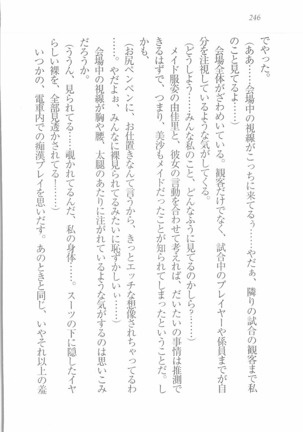 246
でやった。
(ああ……会場中の視線がこっちに来てるぅ……やだぁ、隣りの試合の観客まで私
のこと見てるよ……)
会場全体がざわめいている。観客だけでなく、試合中のプレイヤーや係員までが自
分を注視しているような気がしてくる。
(どうしよう……みんな私のこと、どんなふうに見てるの……)
メイド服姿の由佳里と、彼女の言動を合わせて考えれば、だいたいの事情は推測で
きるはずで、つまり、美沙もメイドだったことが周知されてしまったということだ。し
かも、
(お尻ペンペンに、お仕置きなんて言うから、きっとエッチな想像されちゃってるわ
……。やだよぉ、みんなに裸見られてるみたいに恥ずかしいぃ……)
会場中の視線が胸や腰、太腿のあたりに注がれているような気がするのは思いこみ
だろうか。
(ううん、見られてる……覗かれてるんだ、私の身体……。スーツの下に隠したイヤ
らしい裸を、全部見透かされてる……)
いつかの、電車内での痴漢プレイを思いだす。あのときと同じ、いやそれ以上の羞